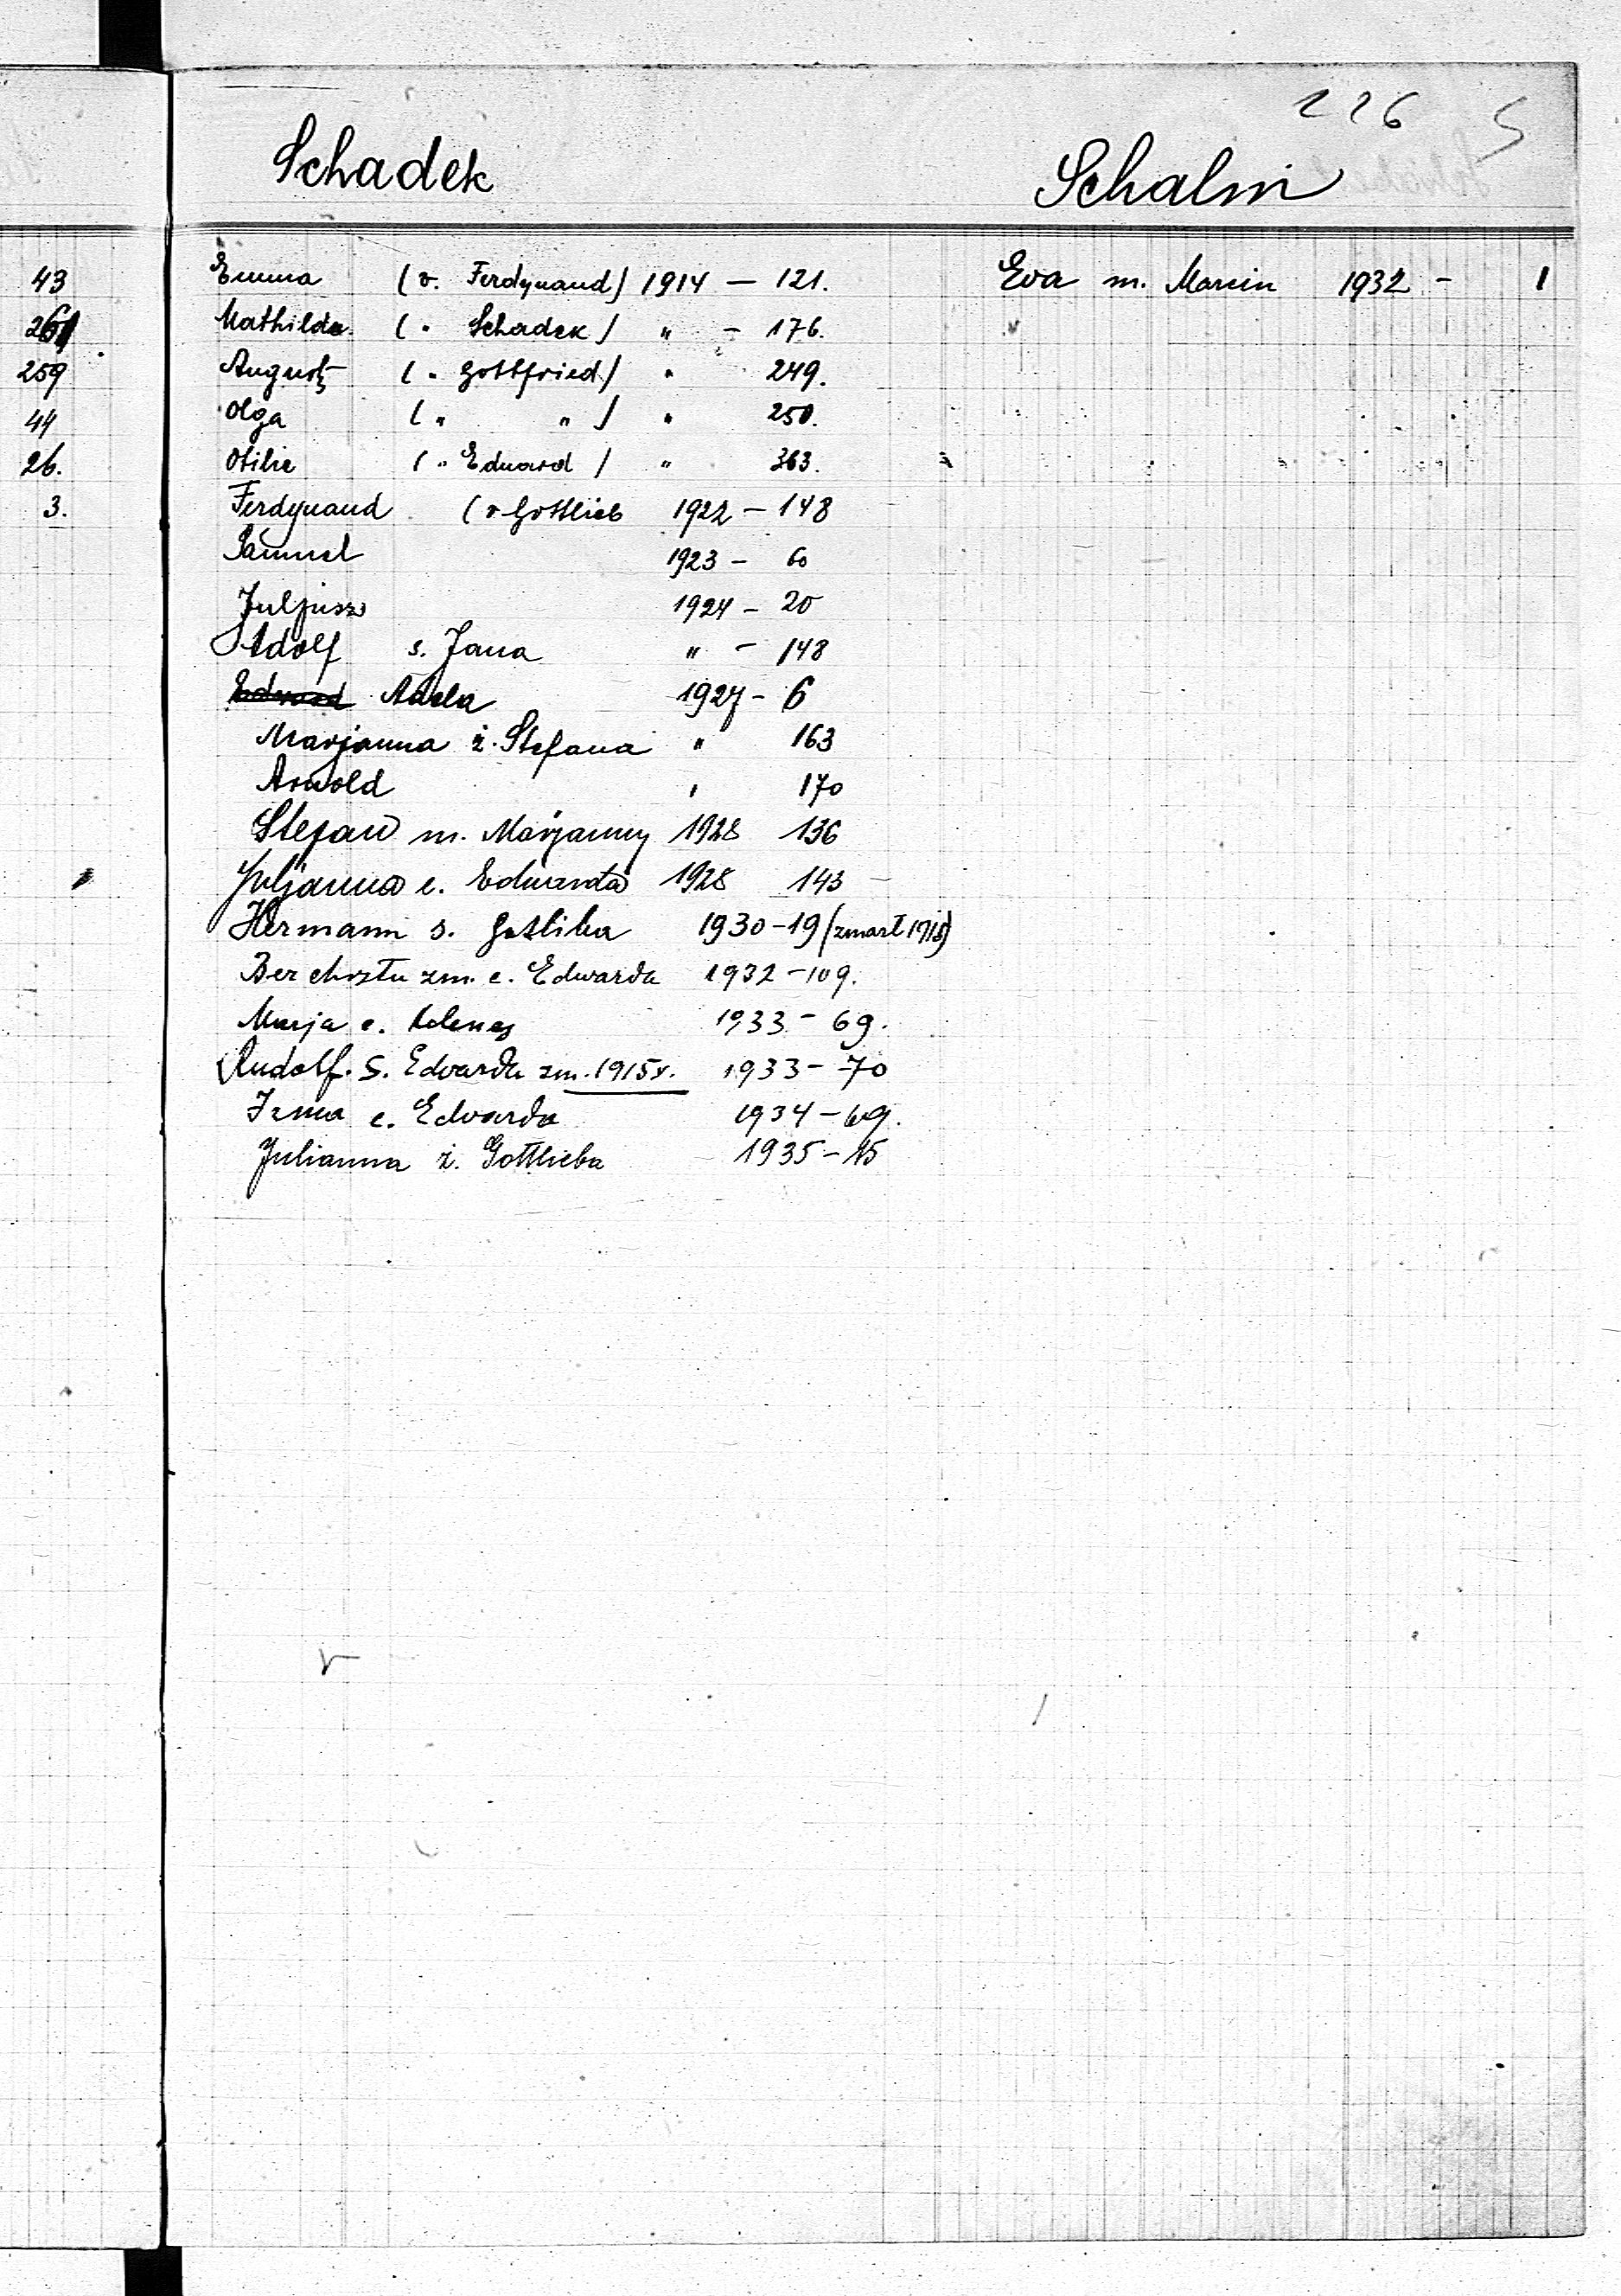 226 S
Schadek
Schalm
43
261
259
44
26.
3.
Emma (v. Ferdynand) 1914 — 121.
Mathilde (" Schadek) " - 176.
August (" Gottfried) " 249.
Olga (" ") " 250.
Otilie (" Eduard) " 363.
Ferdynand (v Gottlieb 1922 — 148
Samuel 1923 — 60
Juljusz 1924 — 20
Adolf s. Jana " — 148
Edward Adela 1927 - 6
Marjanna ż. Stefana " 163
Arnold " 170
Stefan m. Marjanny 1928 136
Juljanna c. Edwarda 1928 143
Hermann s. Gotliba 1930-19 (zmarł 1918)
Bez chrztu zm. c. Edwarda 1932-109.
Marja c. 1933 - 69.
Rudolf. S. Edwarda zm. 1915r. 1933-70
Irma c. Edwarda 1934-69.
Julianna ż. Gottlieba 1935-15
Eva m. Marcin 1932 - 1